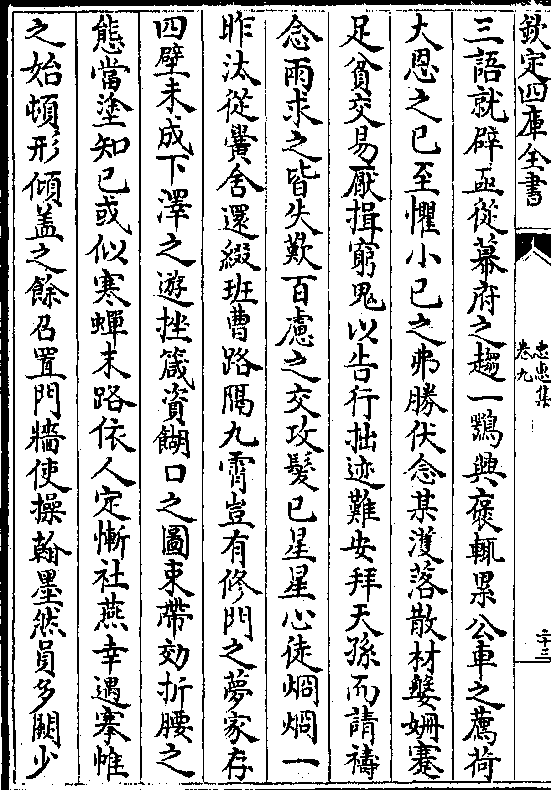 欽定四庫全書
忠惠集
卷九
二十三
三語就辟亟從幕府之趨一鶚興褒輒累公車之薦荷
大恩之已至懼小己之弗勝伏念某濩落散材婆姍蹇
足貧交易厭揖窮鬼以告行拙迹難安拜天孫而請禱
念兩求之皆失歎百慮之交攻髮已星星心徒烱烱一
昨汰從黌舍還綴班曹路隔九霄豈有修門之夢家存
四壁未成下澤之遊挫箴資餬口之圖束帶効折腰之
態當塗知己或似寒蟬末路依人定慚社燕幸遇褰帷
之始頓形傾盖之餘召置門牆使操翰墨然員多闕少